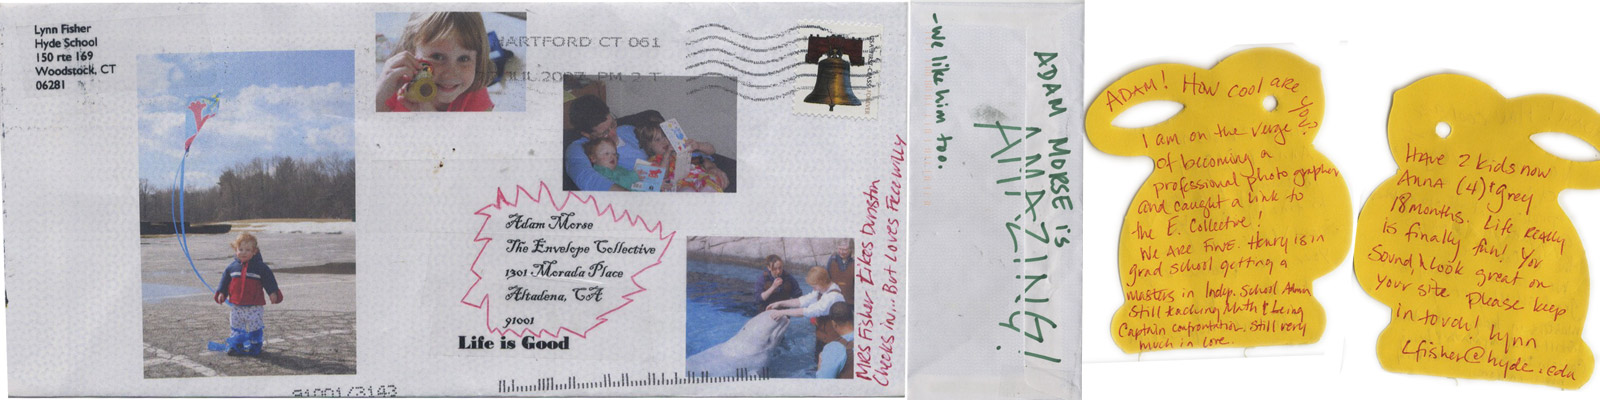 Lynn Fisher
Hyde School
150 rte 169
Woodstock, CT
06281
HARTFORD CT 061
JUL 2007 PM 2 T
Adam Morse
The Envelope Collective
1301 Morada Place
Altadena, CA
91001
Life is Good
Mrs Fisher Likes Dunstin
Cheeks in... But Loves Free willy
91001/3143
ADAM MORSE is
AMAZING!
-we like him too.
ADAM! How cool are
you?
I am on the verge
of becoming a
professional photographer
and caught a link to
the E. Collective!
We are fine. Henry is in
grad school getting a
masters in Indep. School Admn
Still teaching Math & being
Captain confrontation. Still very
much in love.
Have 2 kids now
Anna (4) & Grey
18 months. Life really
is finally fun! You
Sound & look great on
your site please keep
in touch! Lynn
Lfisher@hyde.edu